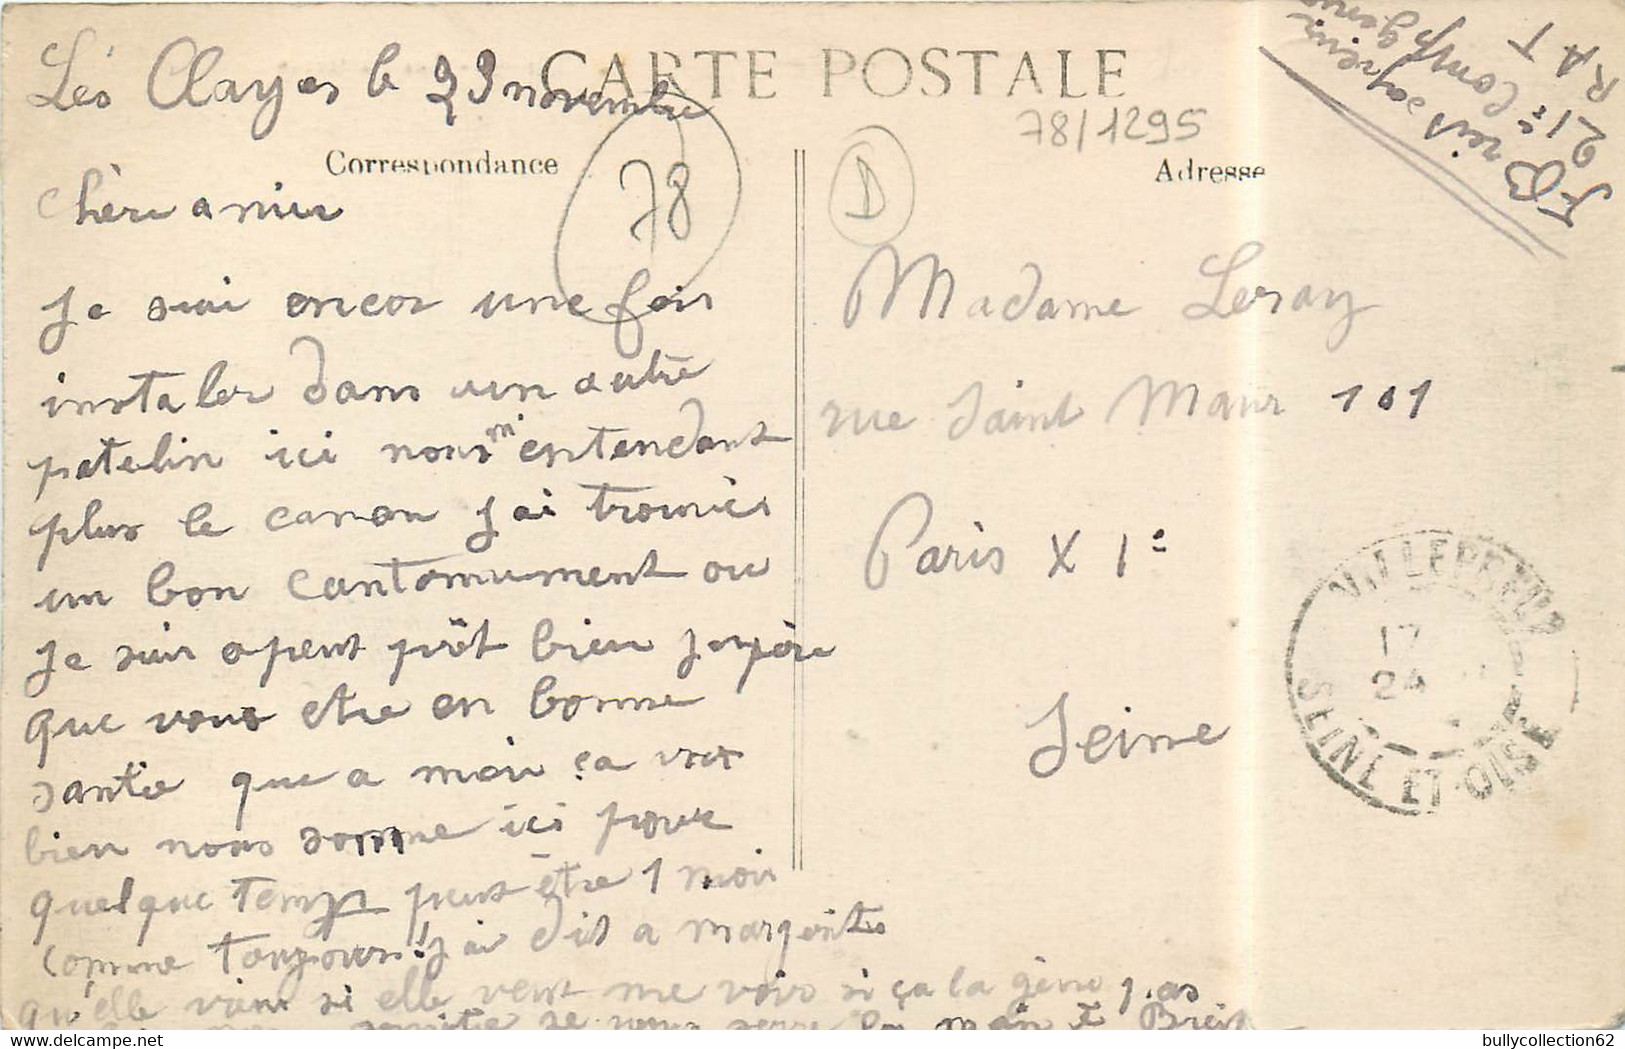 CARTE POSTALE
Les Clayes le 23 novembre
78/1295
Correspondance
Adresse
78
D
21e Comp génie
R A T
chère amie
je sui encor une fois
instaler dans un autre
patelin ici nous m'entendant
plus le canon j'ai trouvés
un bon cantonnument ou
je suis apeut prêt bien jespère
que vous etre en bonne
santie que a moi ça vat
bien nous somme ici pour
quelque temps peut être 1 moi
comme toujours! j'ai dit a margerite
qu'elle viens si elle veut me voir si ça la gène pas
se vous serre la main F Breit
Madame Leray
rue Saint Maur 101
Paris XIe
Seine
VILLEPREUX
17
24
SEINE-ET-OISE
bullycollection62